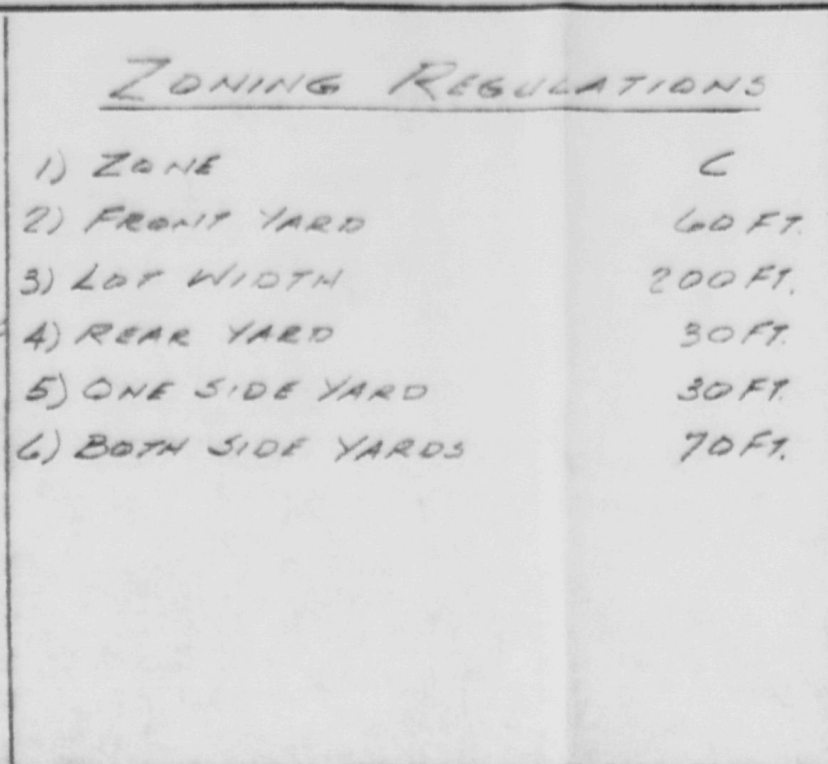 ZONING REGULATIONS
1) ZONE C
2) FRONT YARD 60 FT.
3) LOT WIDTH 200 FT.
4) REAR YARD 30 FT.
5) ONE SIDE YARD 30 FT.
6) BOTH SIDE YARDS 70 FT.